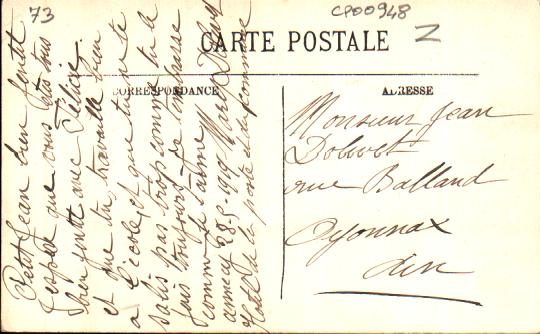 73
CP00948
CARTE POSTALE
CORRESPONDANCE
ADRESSE
Petit Jean bien gentil
j'espere que vous êtes tous
bien gentil avec Félicie
et que tu travaille bien
a l'école et que tu ne te
salis pas trop comme tu le
fais toujours Je t'embrasse
comme je t'aime
annecy 28-5-1919 Mary
Hotel de la poste et du pomme
Monsieur Jean
rue Balland
Oyonnax
Ain